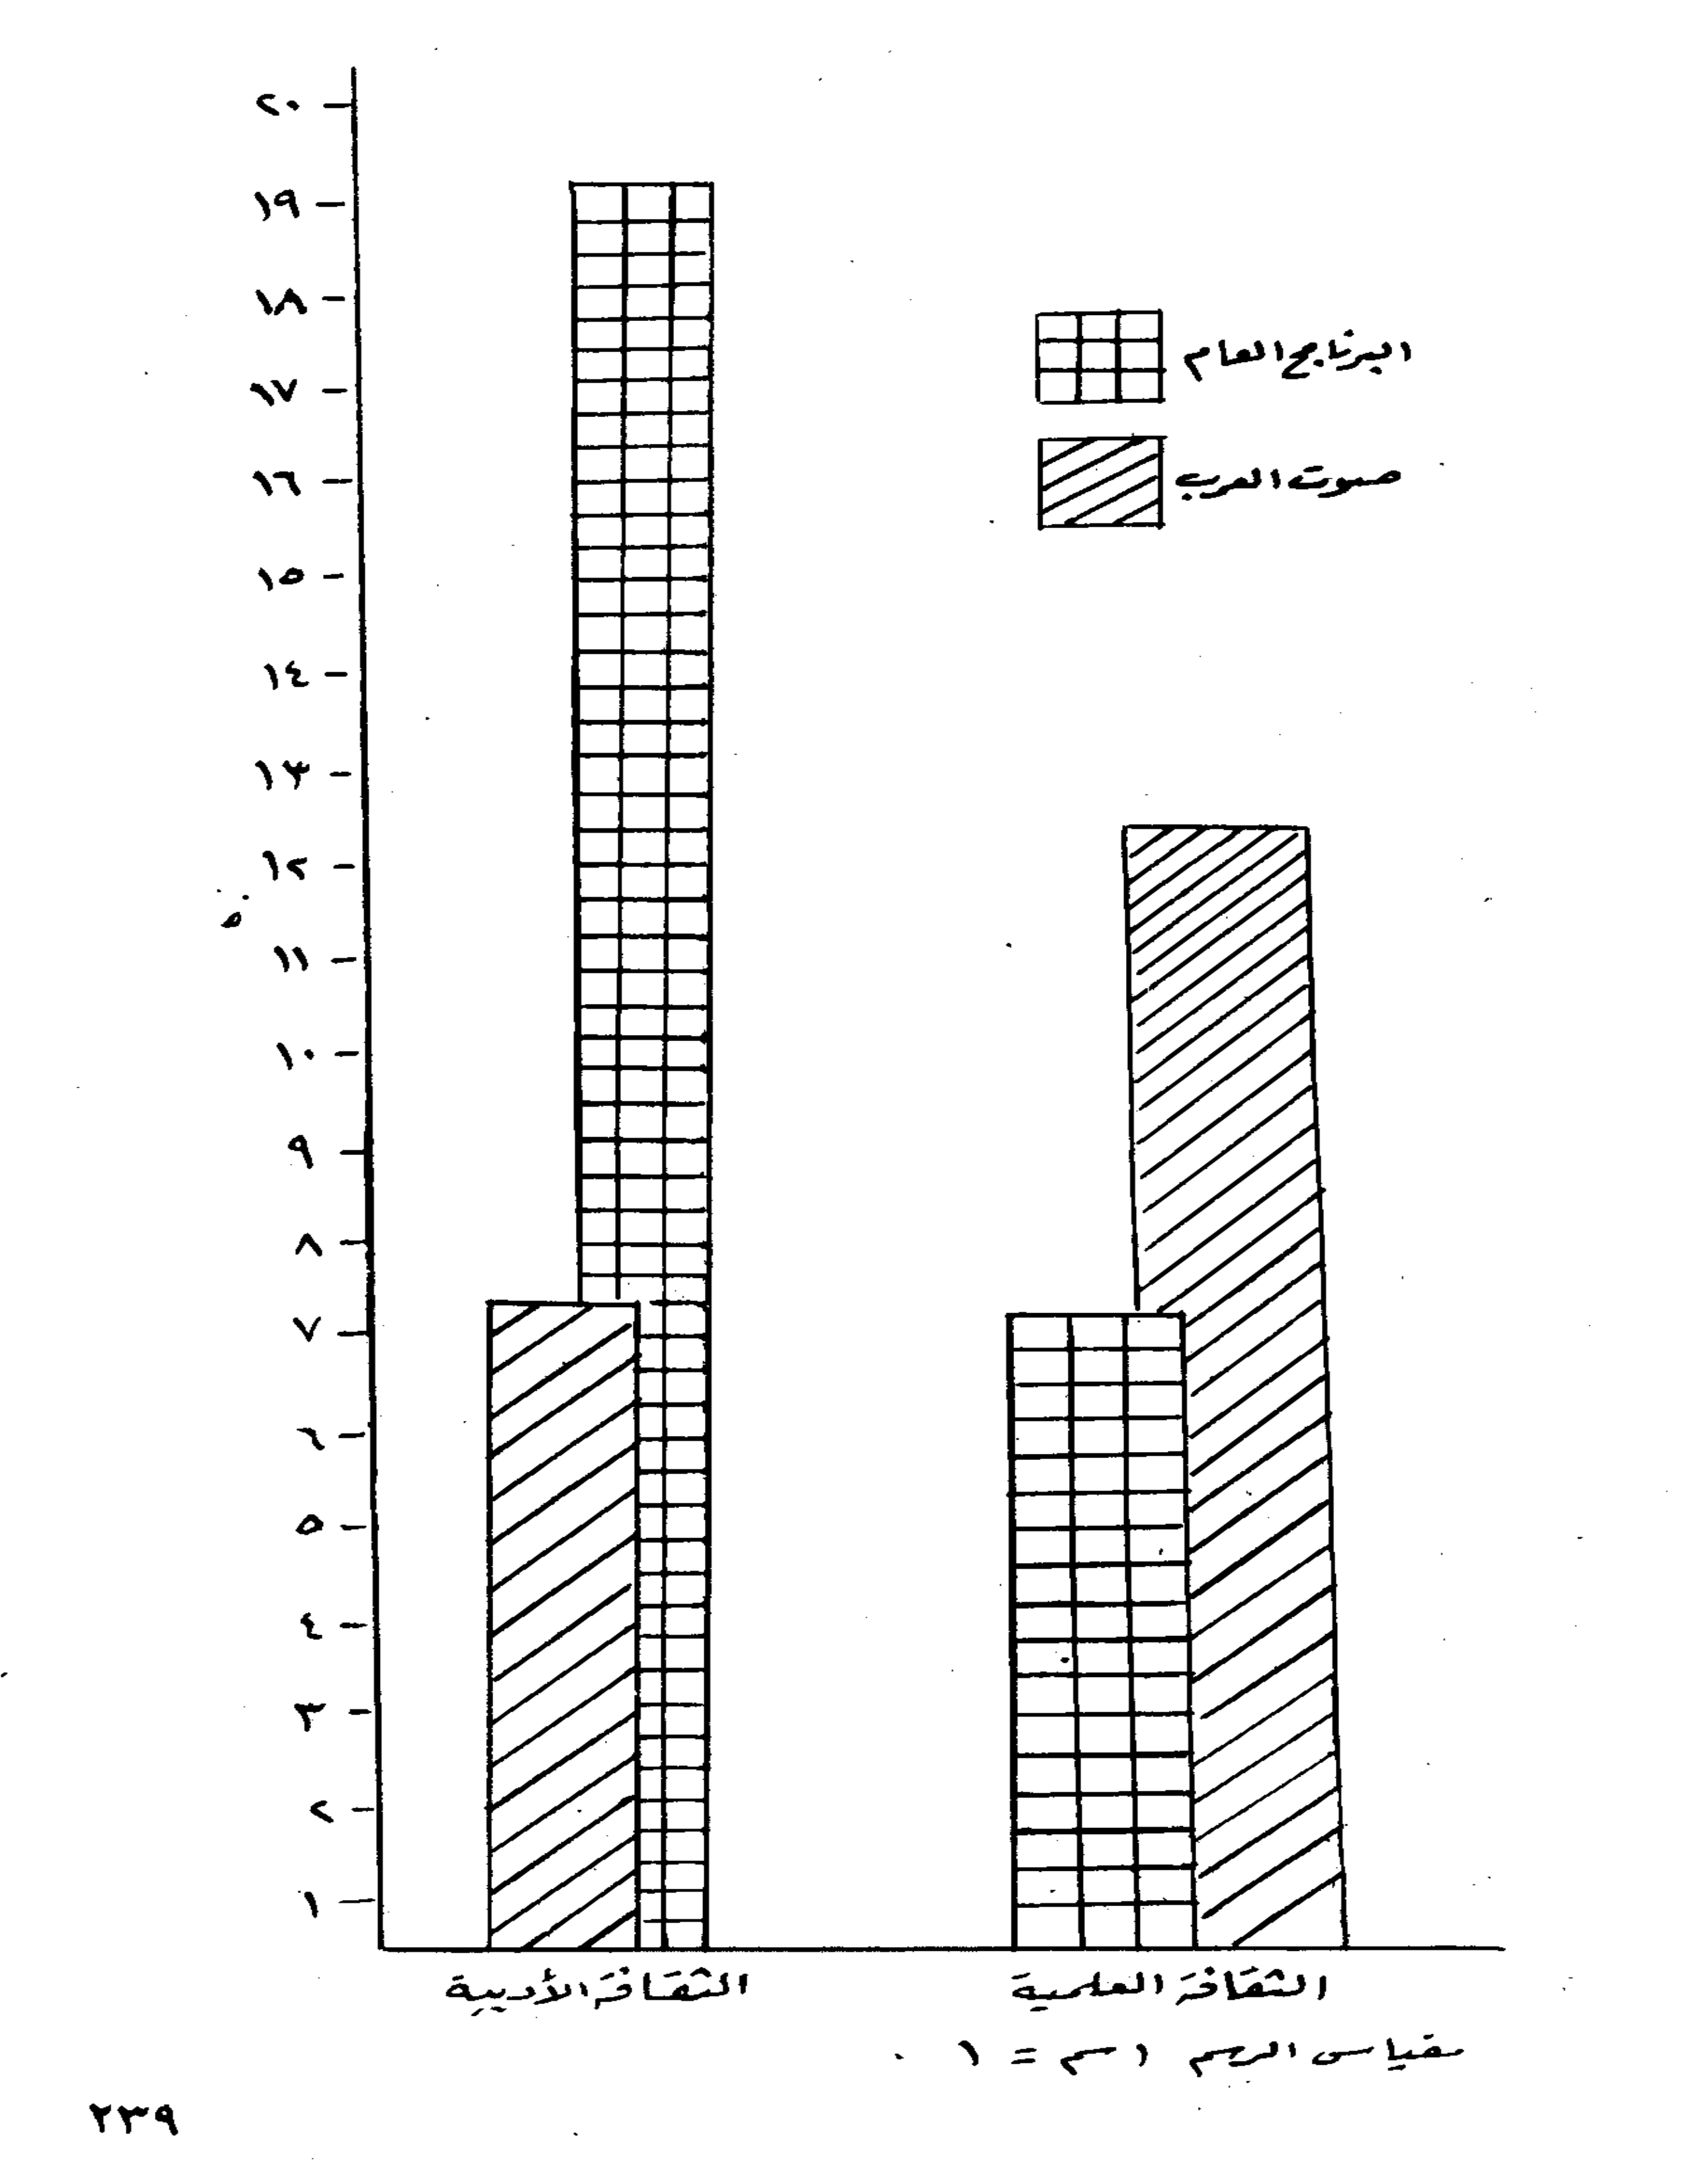 ٢٠
١٩
١٨
١٧
١٦
١٥
١٤
١٣
١٢
١١
١٠
٩
٨
٧
٦
٥
٤
٣
٢
١
البرنامج العام
صوت العرب
الثقافة العلمية
الثقافة الأدبية
مقياس الرسم ١ سم = ١
٢٣٩